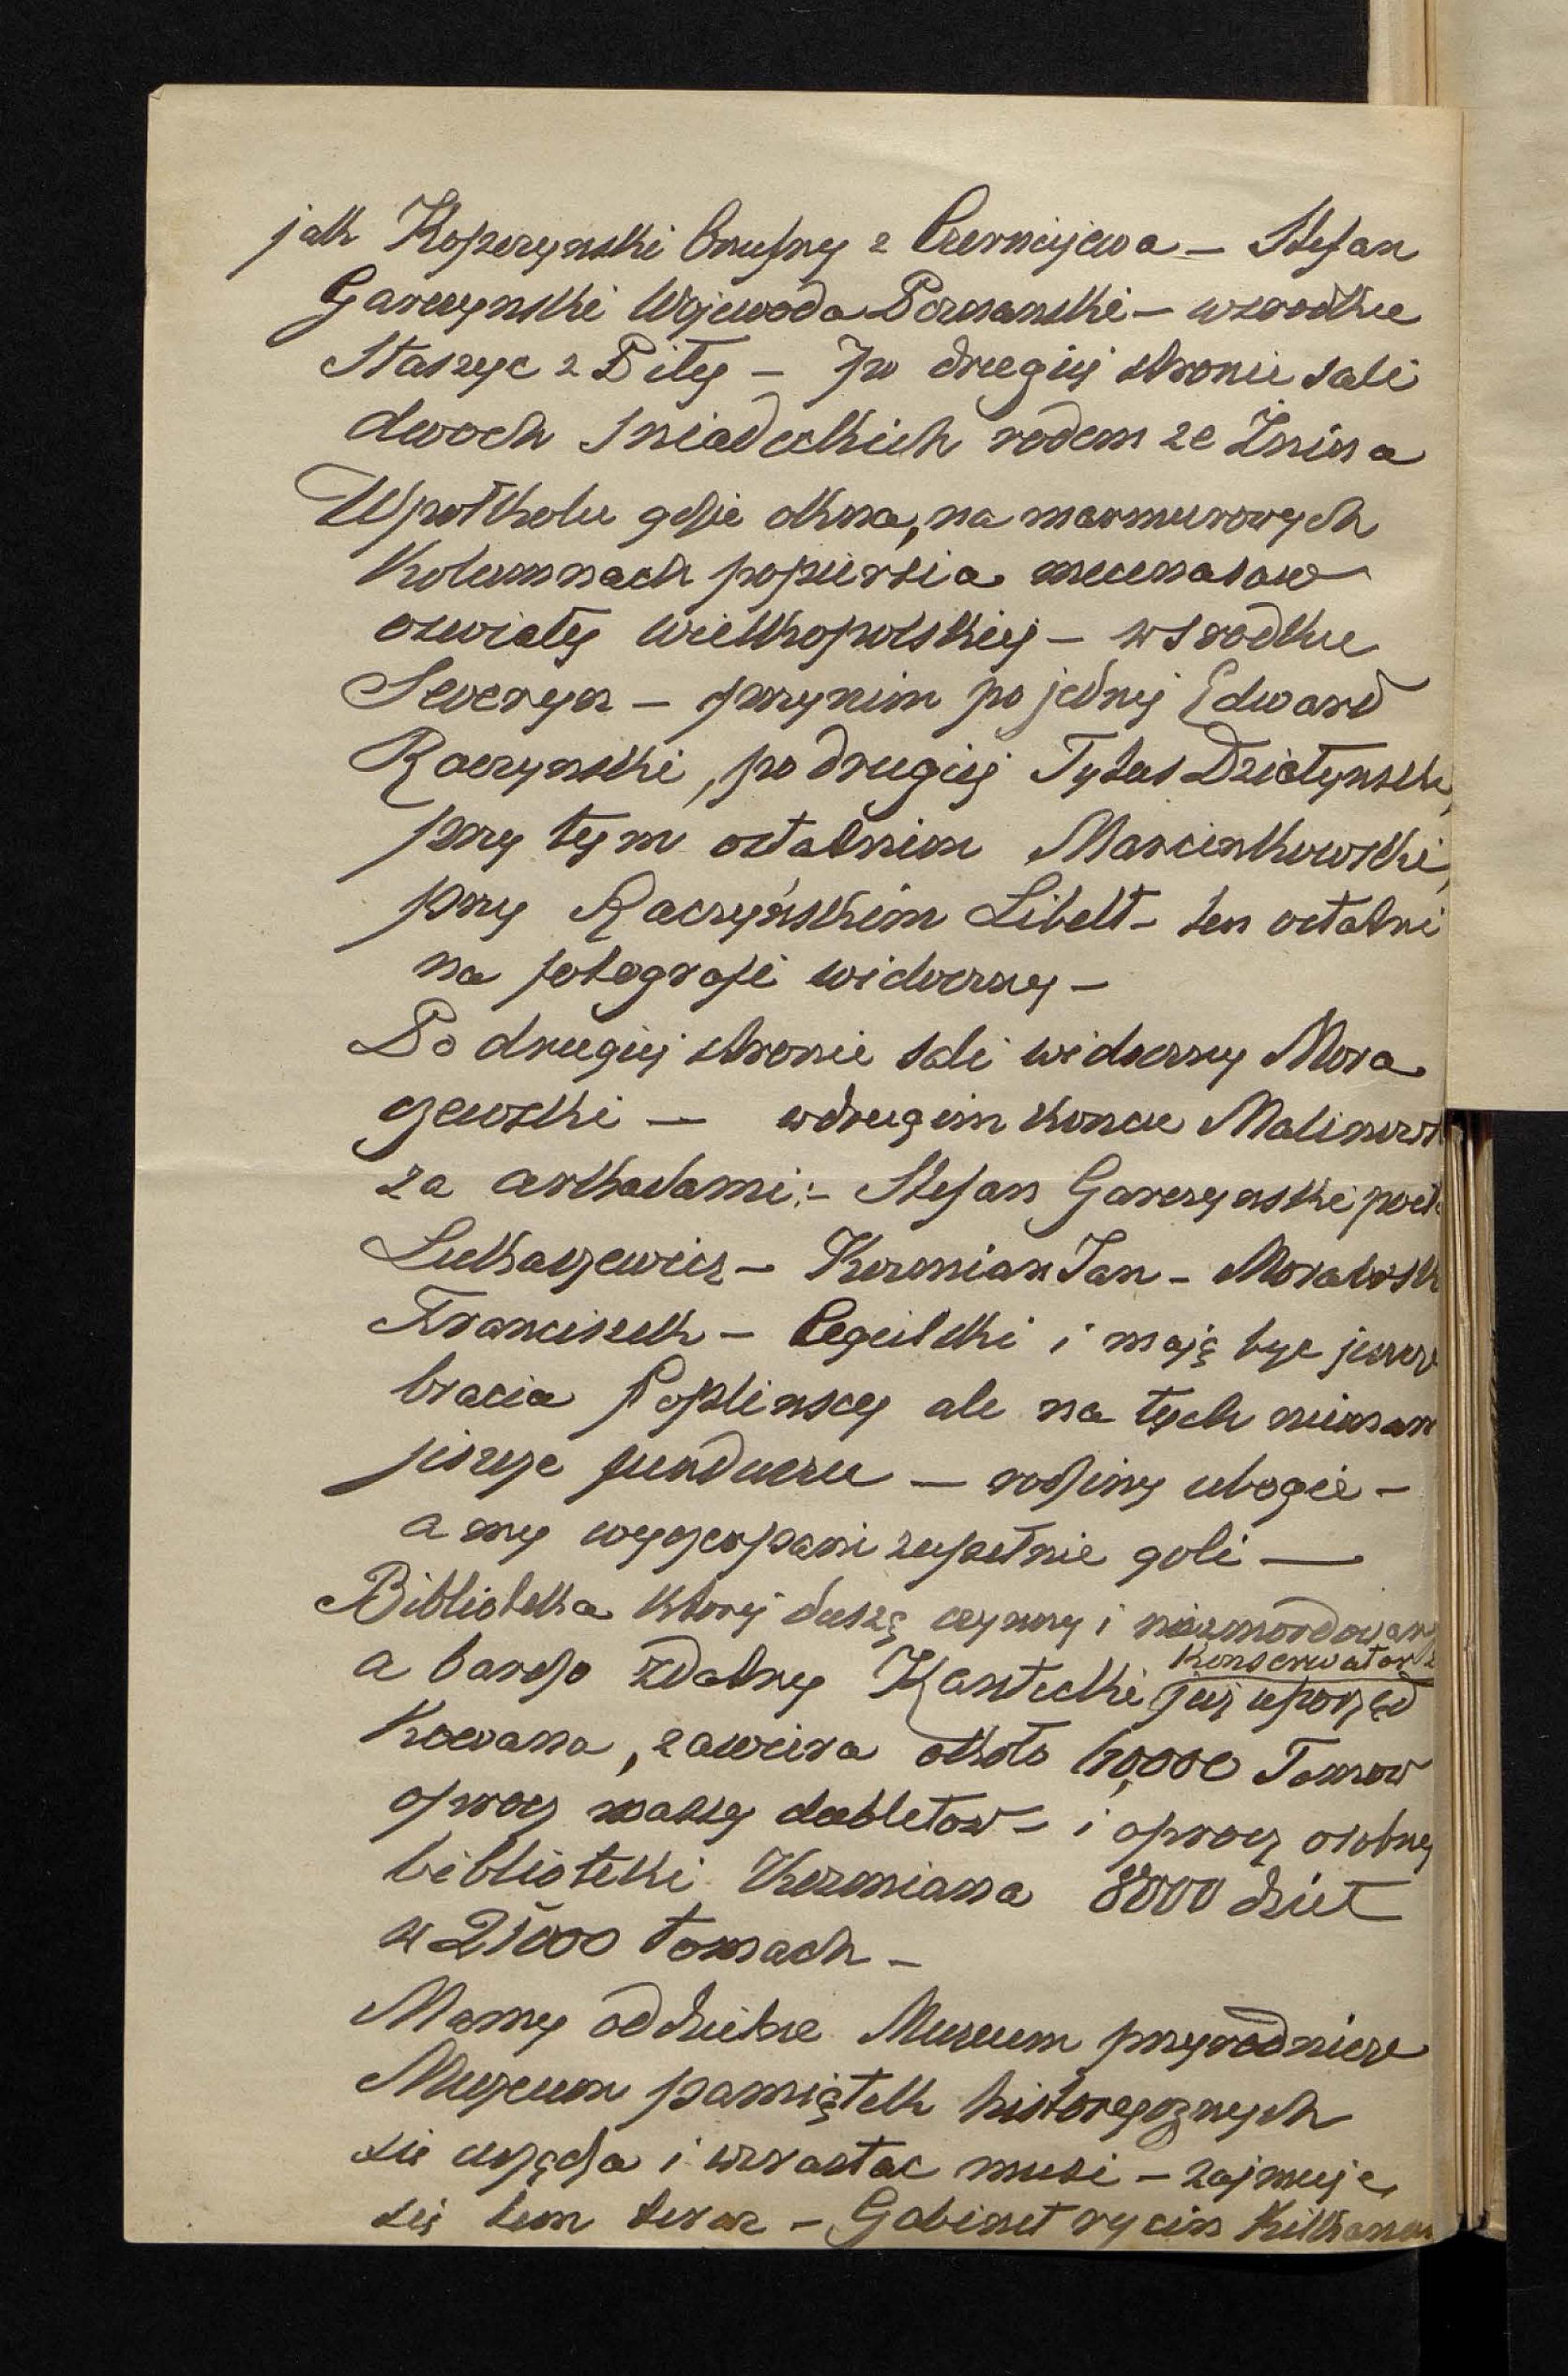 jak Kopczynski Onufry z Czerniejewa – Stefan
Garczynski Wojewoda Poznanski – wsrodku
Staszyc z Piły – Po drugiej stronie sali
dwoch Sniadeckich rodem ze Żnina
Wpołkolu gdzie okna, na marmurowych
Kolumnach popiersia mecenasow
oswiaty wielkopolskiej – w srodku
Seweryn – przynim po jednej Edward
Raczynski, po drugiej Tytus Działynski,
przy tym ostatnim Marcinkowski,
przy Raczyńskim Libelt – ten ostatni
na fotografi widoczny –
Po drugiej stronie sali widoczny Mora
czewski – wdrugim koncu Malinows
za arkadami: – Stefan Garczynski poeta
Lukaszewicz – Kozmian Jan – Morawsk
Franciszek – Cegielski i mają byc jeszcze
bracia Poplinscy ale na tych niemam
jeszcze funduszu – rodziny ubogie –
a my wyczerpani zupełnie goli —
Biblioteka ktorej duszą czynny i niezmordowany
a bardzo zdatny Kantecki Konserwator
już uporząd
kowana, zawiera około Tomow
oprocz masy dubletow – i oprocz osobnej
biblioteki Kozmiana 8000 dzieł
w 21000 tomach –
Mamy oddzielne Museum przyrodnicze
Muzeum pamiątek historycznych
sie urządza i wzrastac musi – zajmuje
się tem teraz – Gabinet rycin